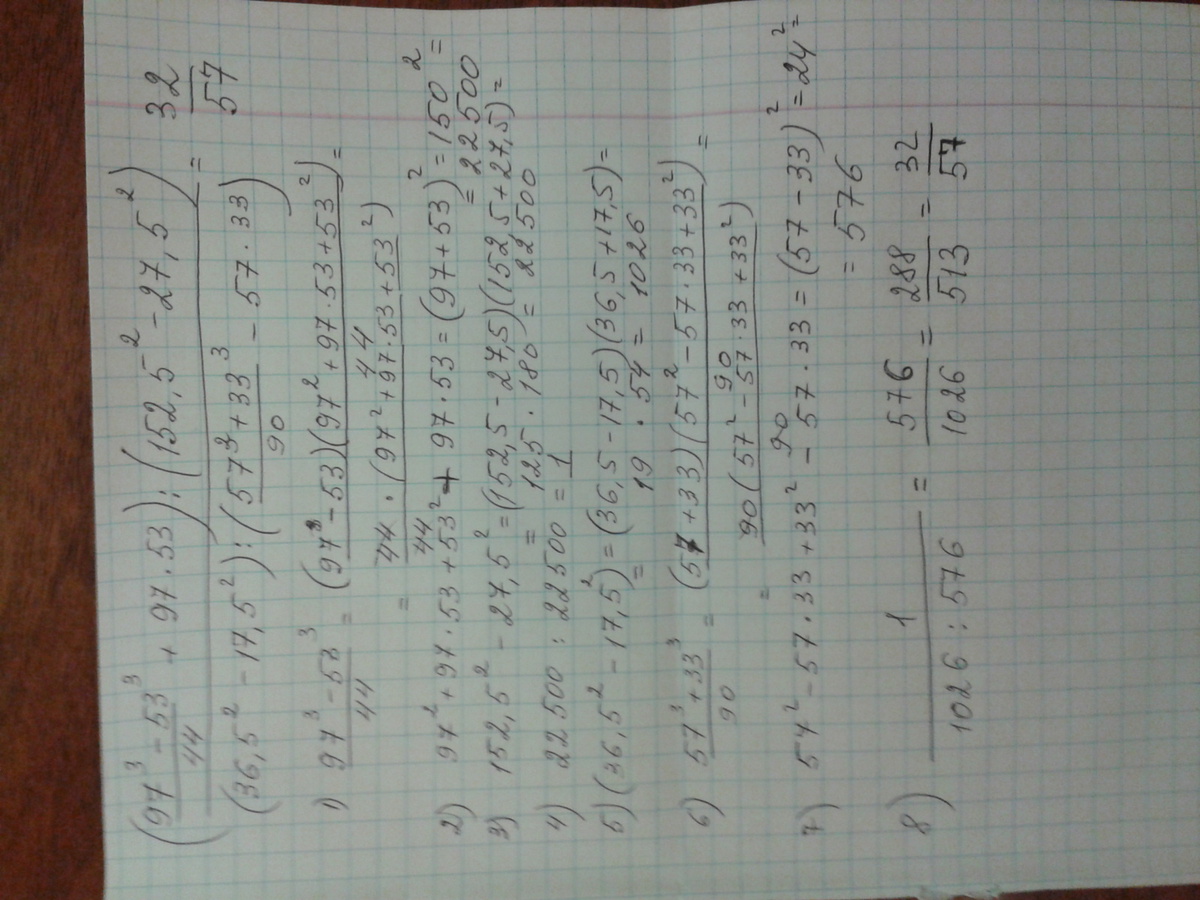 (97³ - 53³ / 44 + 97 · 53) : (152,5² - 27,5²) / = 32/57
(36,5² - 17,5²) : (57³ + 33³ / 90 - 57 · 33)
1) 97³ - 53³ / 44 = (97 - 53)(97² + 97 · 53 + 53²) / 44 =
= 44 · (97² + 97 · 53 + 53²) / 44
2) 97² + 97 · 53 + 53² + 97 · 53 = (97 + 53)² = 150² =
= 22500
3) 152,5² - 27,5² = (152,5 - 27,5)(152,5 + 27,5) =
= 125 · 180 = 22500
4) 22500 : 22500 = 1
5) (36,5² - 17,5²) = (36,5 - 17,5)(36,5 + 17,5) =
= 19 · 54 = 1026
6) 57³ + 33³ / 90 = (57 + 33)(57² - 57 · 33 + 33²) / 90 =
= 90(57² - 57 · 33 + 33²) / 90
7) 54² - 57 · 33 + 33² - 57 · 33 = (57 - 33)² = 24² =
= 576
8) 1 / 1026 : 576 = 576/1026 = 288/513 = 32/57